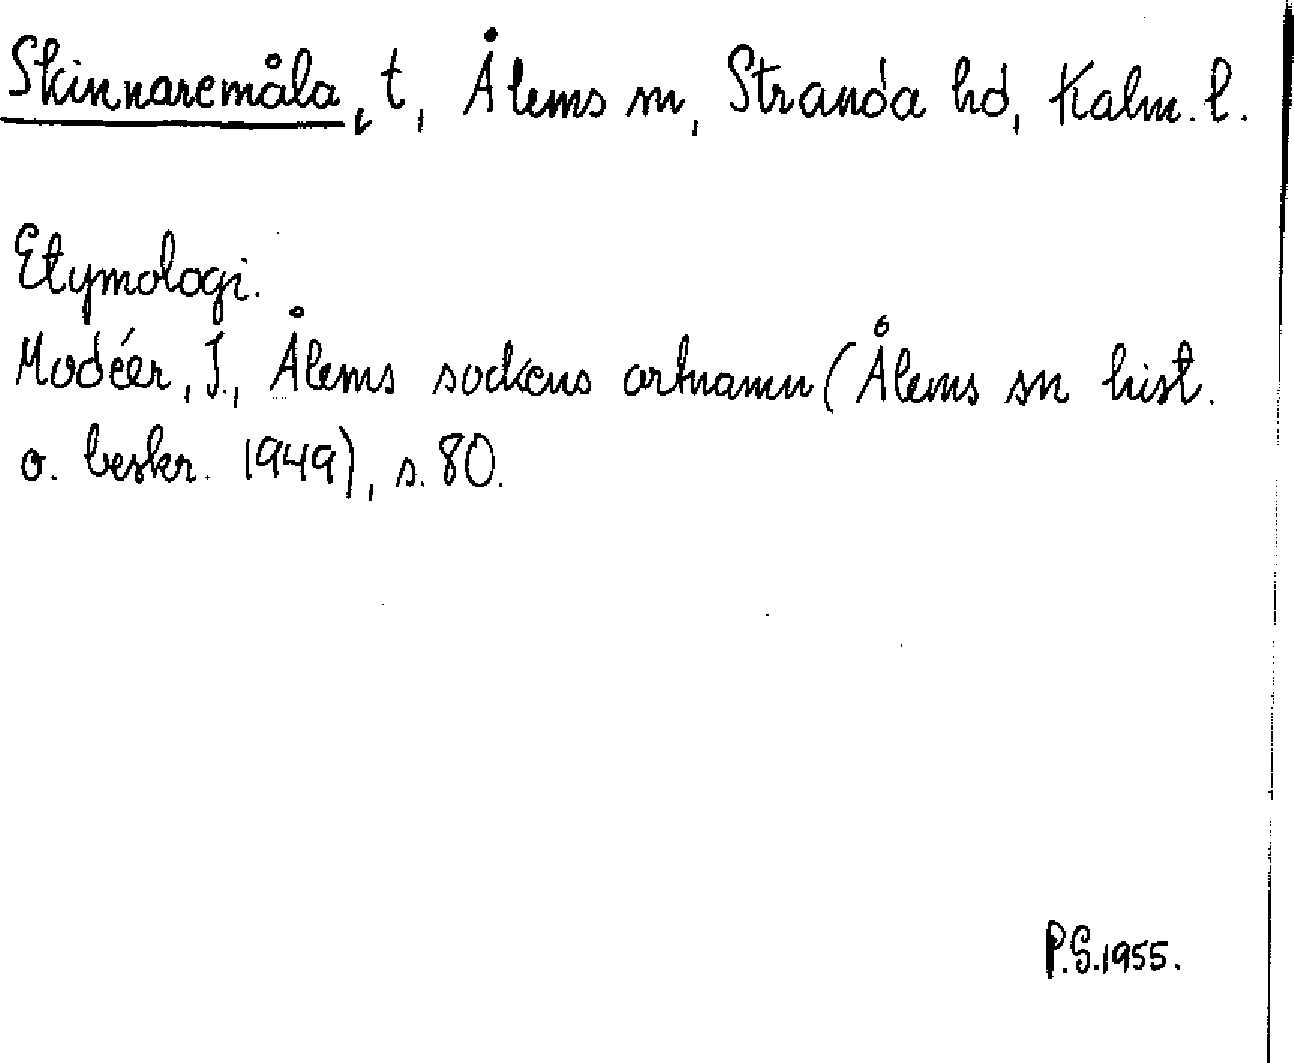 Skinnaremåla, t, Ålems sn, Stranda hd, Kalm. l.
Etymologi.
Modéer, I., Ålems sockens ortnamn (Ålems sn hist.
o. beskr. 1949), s. 80.
P.S. 1955.